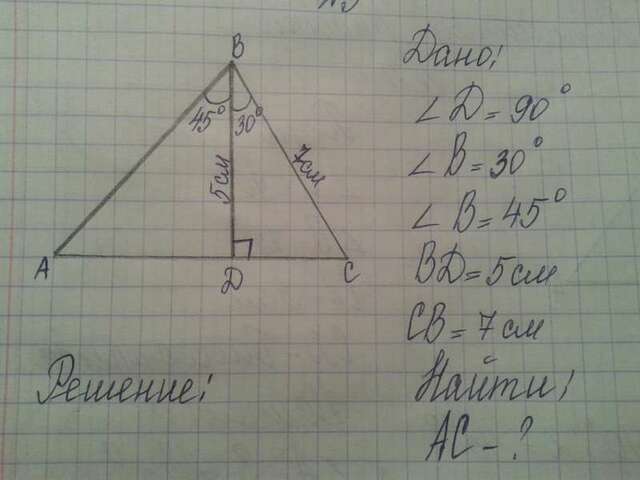 B
45° 30°
5см
7см
A
D
C
Дано:
∠D=90°
∠B=30°
∠B=45°
BD=5см
CB=7см
Найти:
AC-?
Решение: